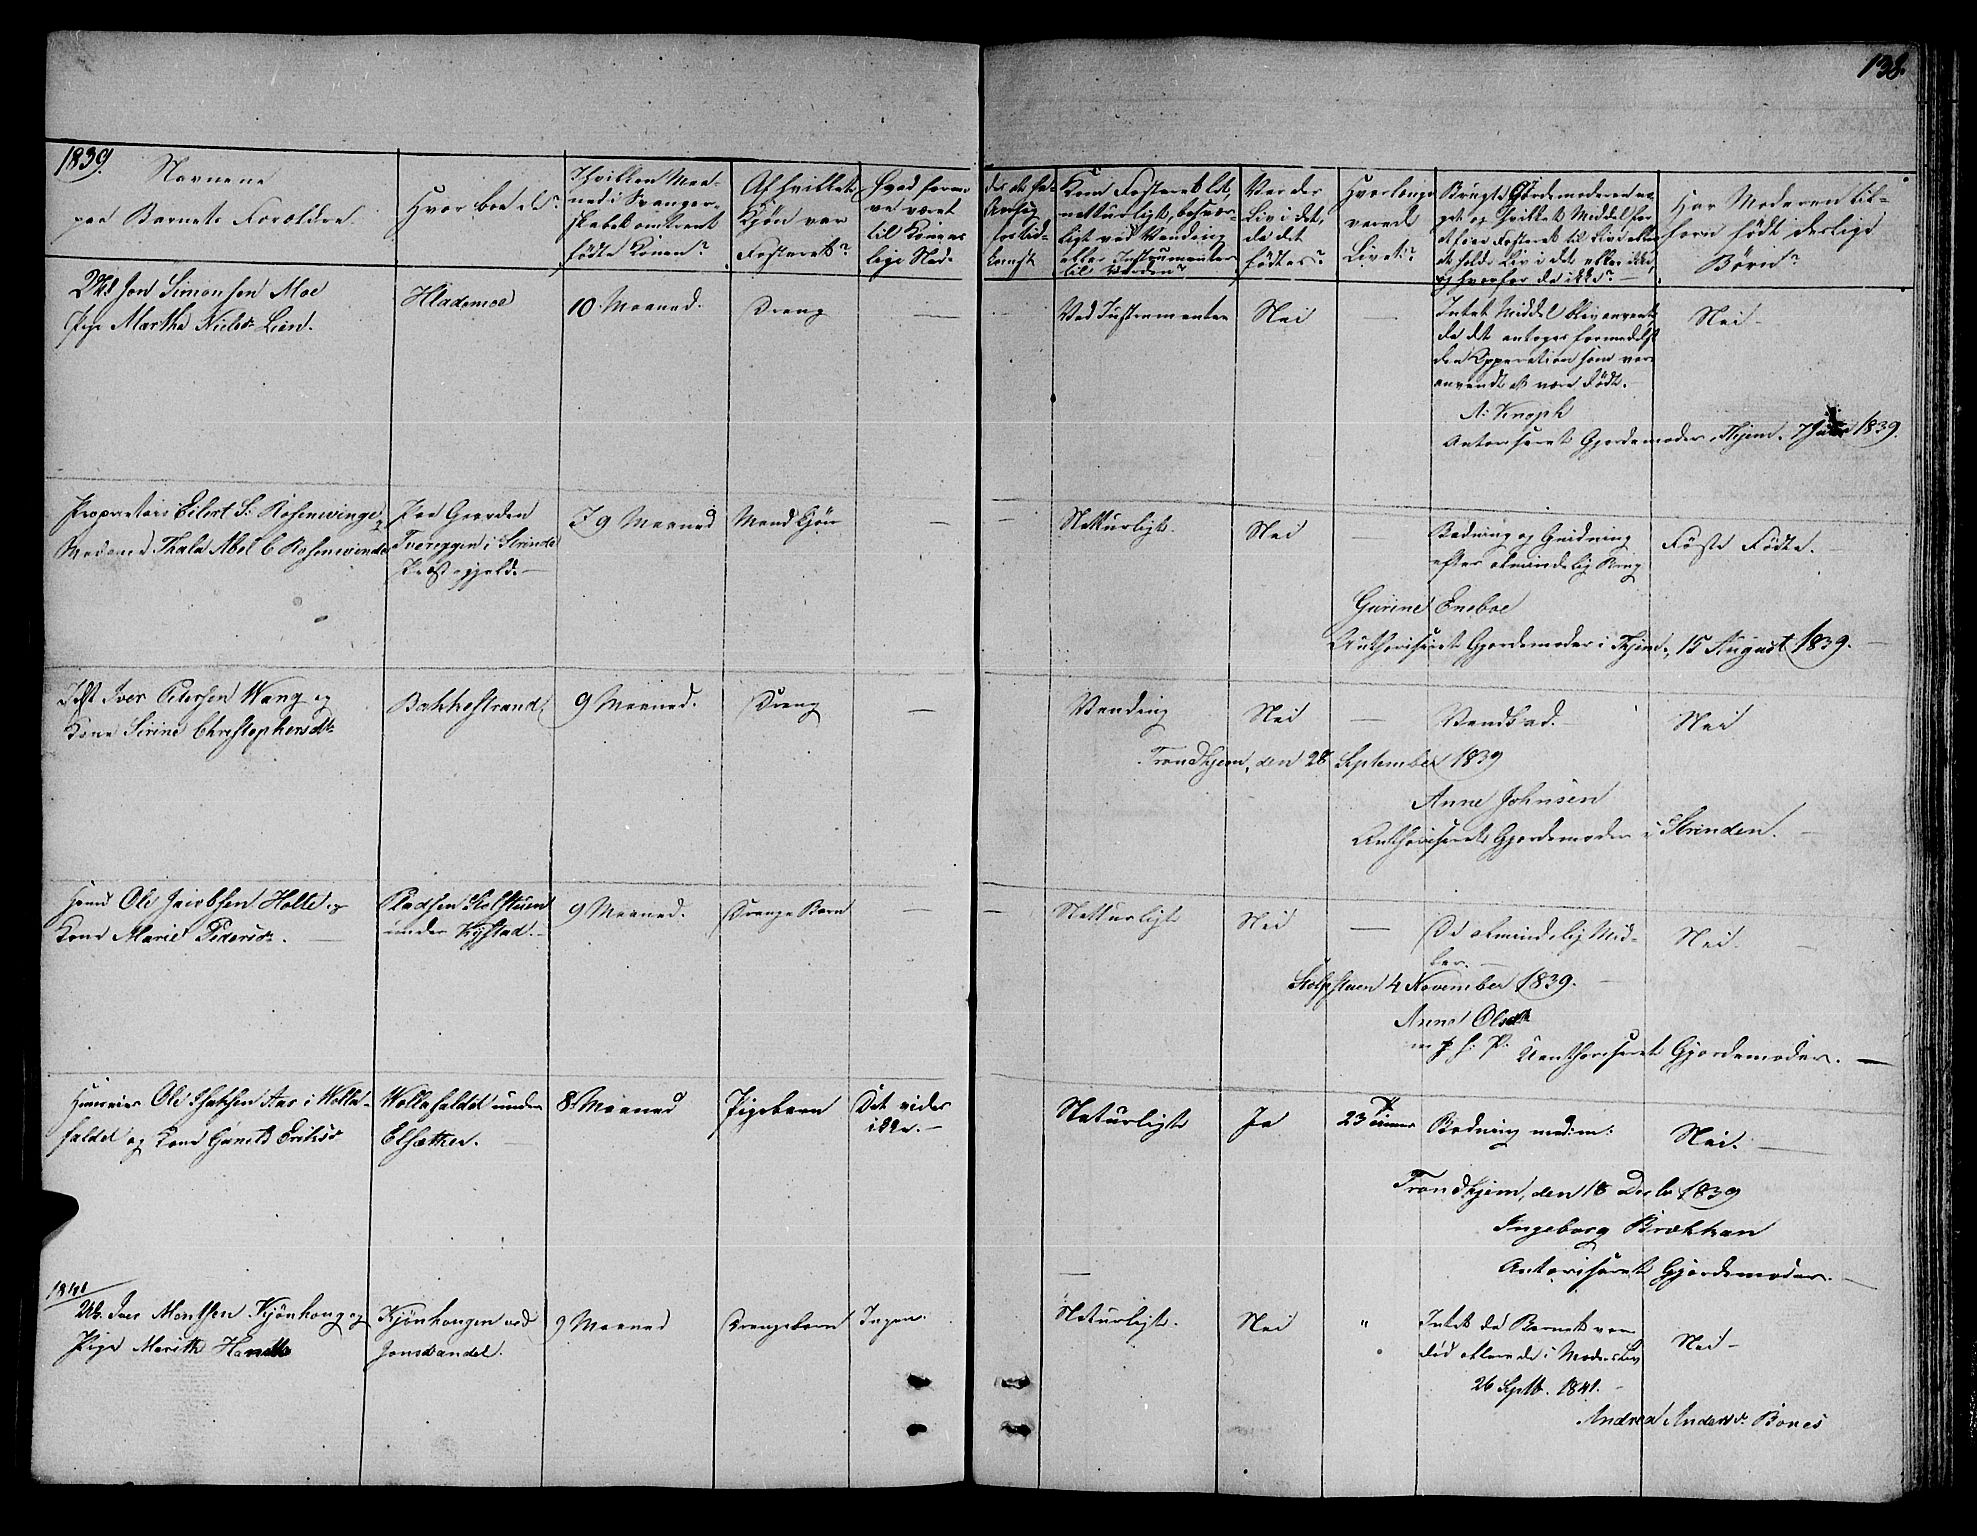 138.
1839.
Navnene
paa Barnets Forældre
Hvor boe de?
I hvilken Maa-
ned i Svanger-
skabet omtrent
fødte Konen?
Af hvilket
Kjøn var
Fosteret?
Hvad forme-
ve været
til Konens
lige Ned-
komst
Kom Fosteret let,
naturligt, besvær-
ligt ved Vending
eller Instrumenter
til Verden?
Var der
Liv i det,
da det
fødtes?
Hvorlænge
varede
Livet?
Brugte Gjordemoderen no-
get og hvilket Middel for
at faae Fosteret til Live eller
at holde Liv i det eller ikke,
og hvorfor da ikke?
Har Moderen til-
forn født deslige
Børn?
Jon Simonsen Moe
Pige Martha Nielsd. Lien.
Hlademoe
10. Maaned.
Dreng
Ved Instrumenter
Nei
Intet Middel blev anvent
da det antoges formedelst
den Opperation som var
anvendt at være Født.
A. Knoph
Autoriseret Gjordemoder, Thjem, 1839.
Nei
Proprietair Eilert S. Rosenvinge
Madame Thala Abel C Rosenvinde
Paa Gaarden
Tvereggen i Strinde
Præstegjeld.
I 9 Maaned
Mandkjøn
Naturligt.
Nei
Badning og Gnidning
efter almindelig Brug
Første Fødte.
Gurine Eneboe
Authoriseret Gjordemoder i Thjem, 15 August 1839.
Iver Petersen Wang og
Kone Sirine Christophersdtr
Bakkestrand
9 Maaned.
Dreng
Vending
Nei
Vandbad.
Nei
Trondhjem, den 28 September 1839
Anne Johnsen
Authoriseret Gjordemoder i Strinden.
Ole Jacobsen Holte og
Kone Marie Pedersdr.
Pladsen Stolstuen
under Kystad.
9 Maaned.
Drenge Barn
Naturligt
Nei
De almindelig Mid-
ler.
Nei.
Stolpstuen 4 November 1839.
Anne Olsdtr
m. f. P. Uauthoriseret Gjordemoder.
Huusmand Ole Isaksen Aas i Wolla-
faldet og Kone Gunild Eriksd
Wollafaldet under
Elsætter.
8. Maaned
Pigebarn
Det vides
ikke.
Naturligt
Ja
23 Timer
Badning med m:
Nei.
Trondhjem, den 18 Decbr 1839
Ingeborg Brækkan
Autoriseret Gjordemoder.
1841
Iver Montsen Kjønhoug og
Pige Marith Hansdr
Kjønhougen ved
Jonsvandet.
9 Maaned
Drengebarn
Ingen.
Naturligt.
Nei
"
Intet da Barnet var
død allerede i Moders Liv
Nei
26 Septb. 1841.
Andrea Andersdr Bones